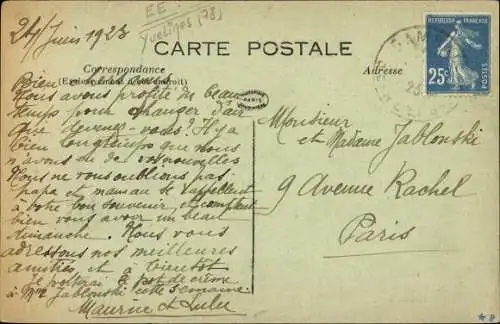 24 Juin 1923
EE.
Yvelines (78)
CARTE POSTALE
Correspondance
Adresse
REPUBLIQUE FRANÇAISE
25c
POSTES
PARIS
Bien
Nous avons profité du beau
temps pour changer d'air
Que devenez-vous? Il y a
bien longtemps que nous
n'avons eu de vos nouvelles
Nous ne vous oublions pas
papa et maman se rappellent
à votre bon souvenir et comptent
bien vous avoir un beau
dimanche. Nous vous
adressons nos meilleures
amitiés et à bientôt
Je porterai le pot de crème
à Mme Jablonski cette semaine.
Maurice et Lulu
Monsieur
et Madame Jablonski
9 Avenue Rachel
Paris